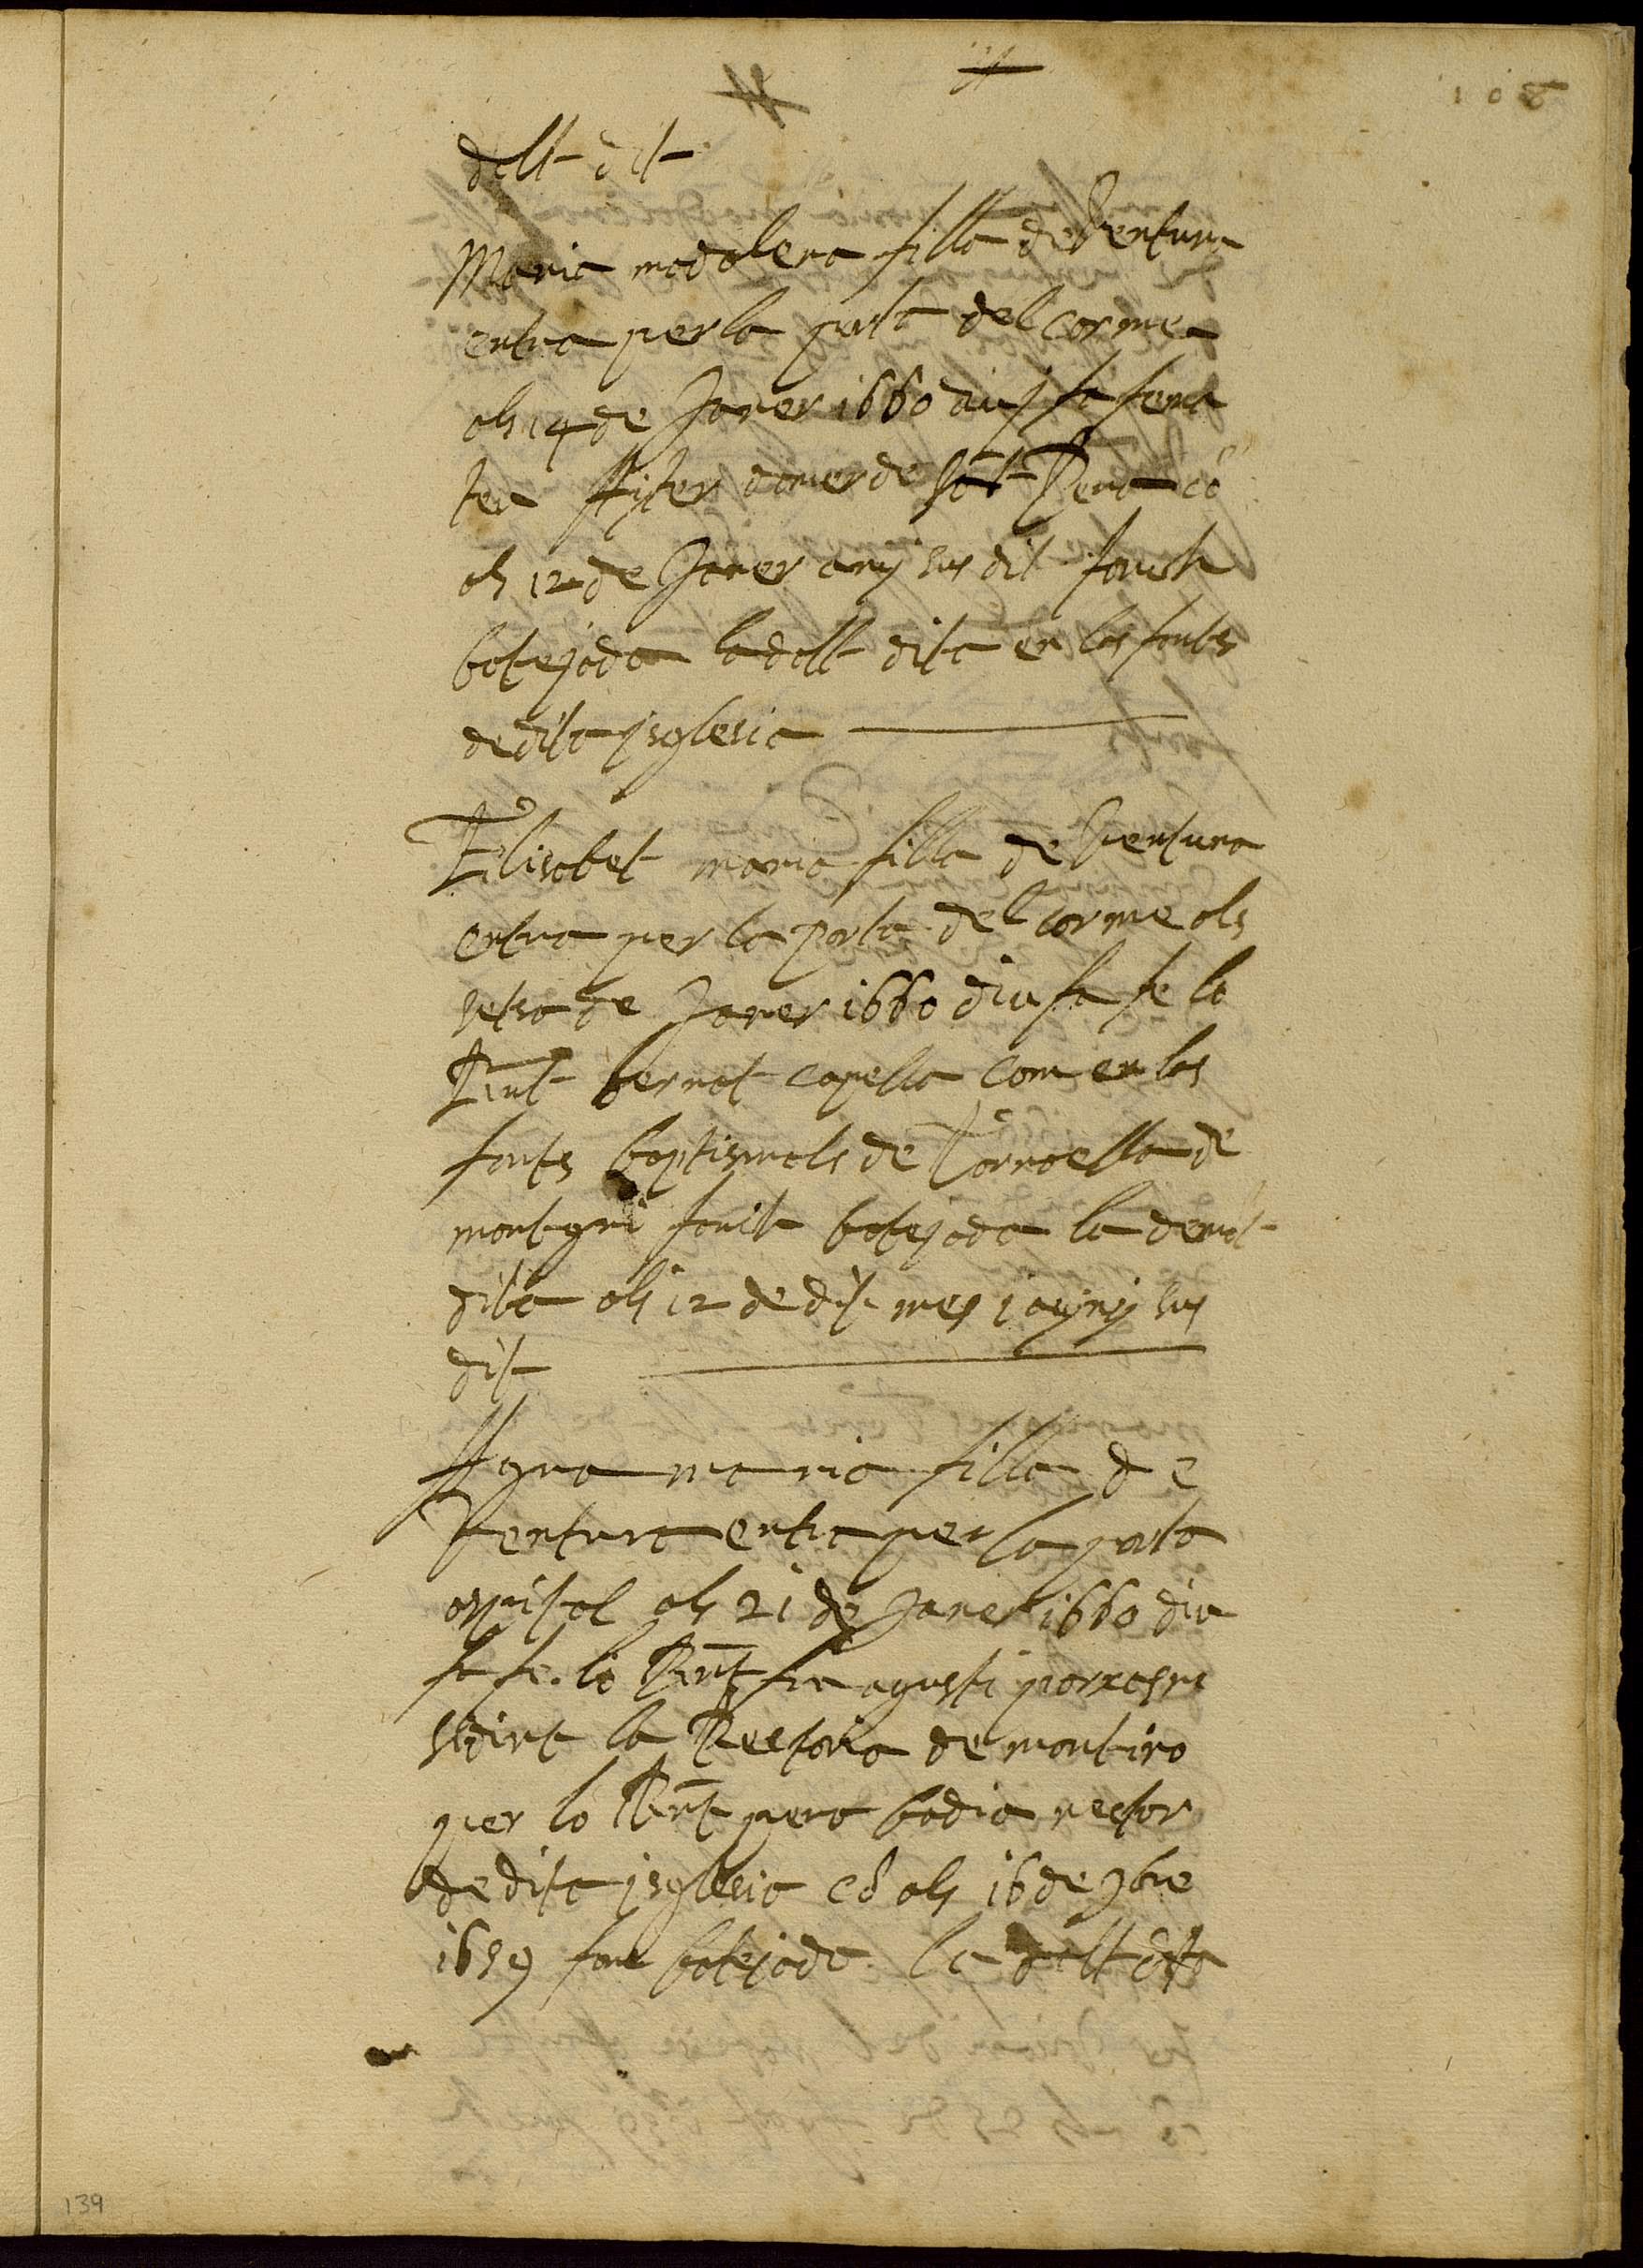 108
dalt dit
Maria madalena filla de Ventura
entra per la porta del carme
als 14 de Janer 1660 diuj fa fe
domer de Sāt Pera cō
als 12 de Janer anj sus dit fonch
batejada la dalt dita en las fonts
de dita jsglesia
Elisabet maria filla de Ventura
entra per la porta del carme als
setsa de Janer 1660 diu fa fe lo
Rnt bernat capella com en las
fonts baptismals de Torroella de
montgri fonch batejada la demūt
dita als 12 de dit mes j anj sus
dit
Agna maria filla de
Ventura entra per la porta
ospital als 21 de Janer 1660 diu
fa fe lo Rnt fra agusti
la Rectoria de montiro
per lo Rnt pera badia rector
de dita jsglesia cō als 16 de 9bre
1659 fou batejada la dalt dita
139